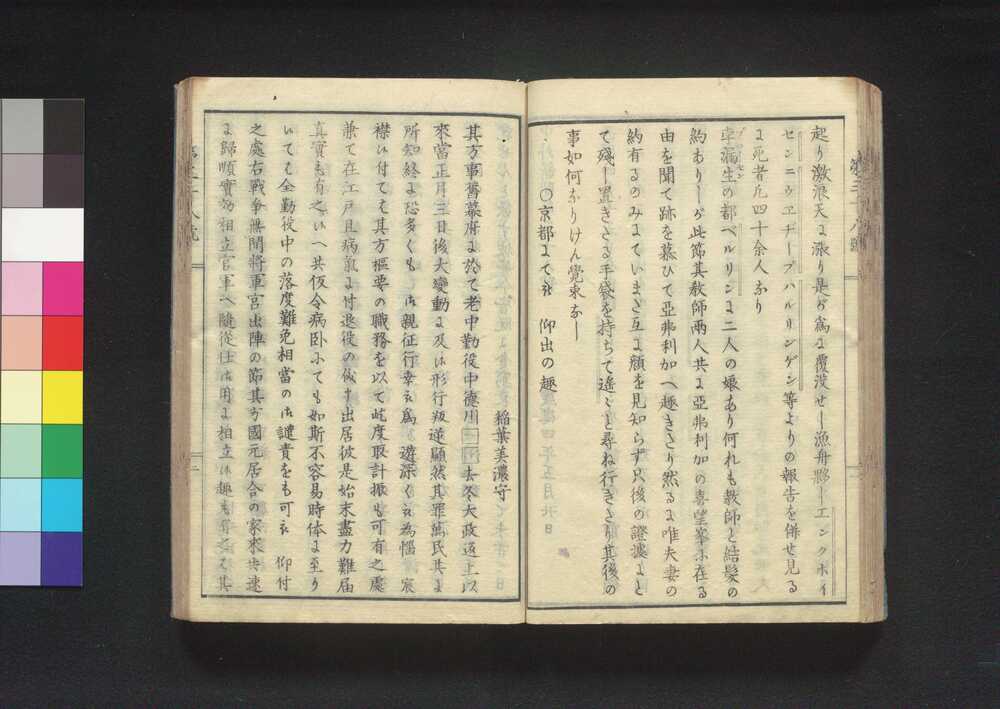 起り激浪天よ漲り是が爲よ覆没せし漁舟夥しエンクホイ
センニウエヂープハルリンゲン等よりの報告を併せ見る
よ死者凡四十余人なり
孛漏生の都ベルリンよ二人の娘あり何れも教師と結髪の
約ありしが此節其教師兩人共よ亞弗利加の喜望峯に在る
由を聞て跡を慕ひて亞弗利加へ趣きさり然るよ唯夫妻の
約有るのみよていまだ互よ顔を見知らず只後の證據よと
て殘し置きさる手袋を持ちて遙々と尋ね行きさり其後の
事如何なりけん覺束なし
○京都よて被 仰出の趣
稲葉美濃守
其方事舊幕府よ於て老中勤役中德川□□去冬大政返上以
來當正月三日後大變動よ及候形行叛逆顯然其罪萬民共よ
所知終よ恐多くも 御親征行幸被爲 遊深く被為惱 宸
襟候付ても其方樞要の職務を以て屹度取計振も可有之處
兼て在江戸且病氣よ付退役の儀申出居彼是始末盡力難届
真實も有之候へ共仮令病卧にても如斯不容易時体よ至り
候ても全勤役中の落度難免相當の御譴責をも可被 仰付
之處右戰爭無間將軍宮出陣の節其方國元居合の家來共速
よ歸順實効相立官軍へ隨從仕御用よ相立候趣も